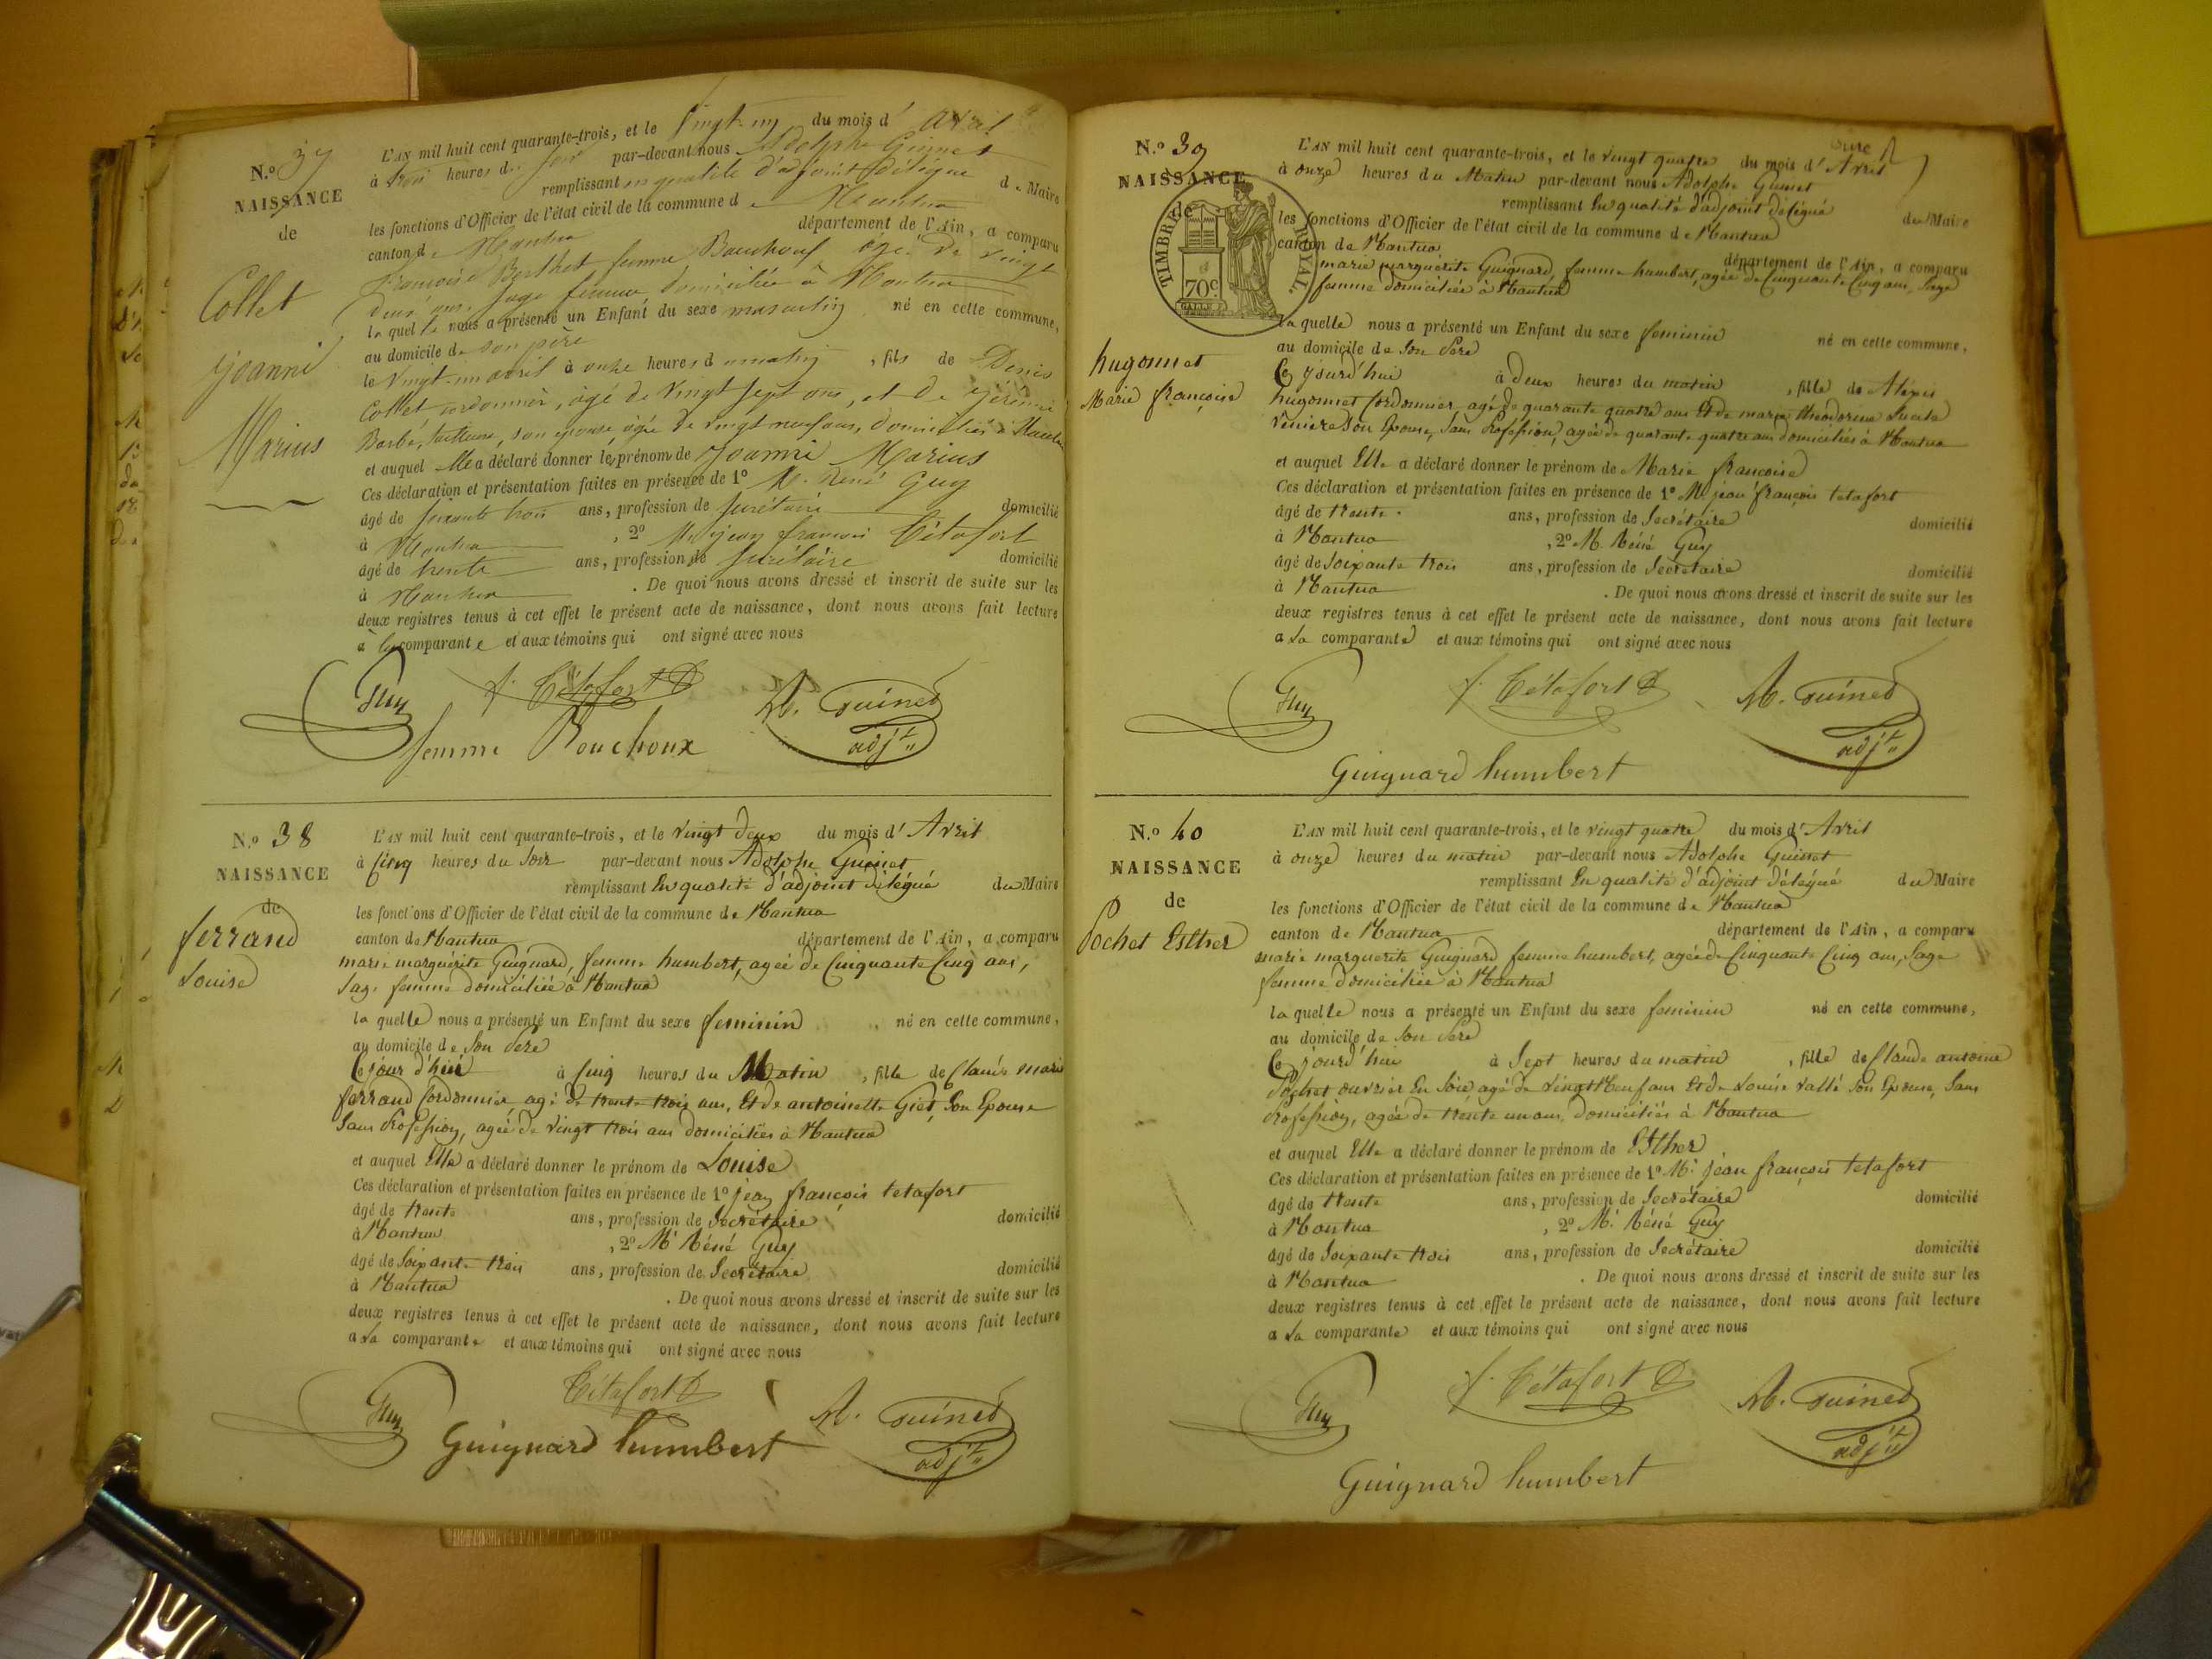 N.° 37
NAISSANCE
de
Collet
Joanni
Marius
L'AN mil huit cent quarante-trois, et le vingt-un du mois d'avril
à trois heures du soir par-devant nous Adolphe Guinet
remplissant en qualité d'adjoint délégué du Maire
les fonctions d'Officier de l'état civil de la commune de Nantua
canton de Nantua département de l'Ain, a comparu
Françoise Berthet femme Bouchoux, âgée de vingt
deux ans, sage femme domiciliée à Nantua
laquelle nous a présenté un Enfant du sexe masculin né en cette commune,
au domicile de son père
le vingt-un avril à onze heures du matin, fils de Denis
Collet cordonnier, âgé de vingt sept ans, et de
Barbé, tailleuse, son épouse âgée de vingt neuf ans, domiciliés à Nantua
et auquel elle a déclaré donner le prénom de Joanni Marius
Ces déclaration et présentation faites en présence de 1° M. René Guy
âgé de soixante trois ans, profession de secrétaire domicilié
à Nantua, 2° M. jean françois Tétafort
âgé de trente ans, profession de secrétaire domicilié
à Nantua. De quoi nous avons dressé et inscrit de suite sur les
deux registres tenus à cet effet le présent acte de naissance, dont nous avons fait lecture
à la comparante et aux témoins qui ont signé avec nous
Guy f. Tétafort A. Guinet
femme Bouchoux adjt
N.° 38
NAISSANCE
de
ferrand
Louise
L'AN mil huit cent quarante-trois, et le vingt deux du mois d'Avril
à Cinq heures du Soir par-devant nous Adolphe Guinet
remplissant En qualité d'adjoint délégué du Maire
les fonctions d'Officier de l'état civil de la commune de Nantua
canton de Nantua département de l'Ain, a comparu
marie marguérite Guignard, femme humbert, agée de Cinquante Cinq ans,
Sage femme domiciliée à Nantua
laquelle nous a présenté un Enfant du sexe feminin né en cette commune,
au domicile de Son Pere
Cejour d'hui à Cinq heures du Matin, fille de Claude marie
ferrand Cordonnier agé de trente trois ans, Et de antoinette Giet, Son Epouse
Sans Profession, agée de vingt trois ans domiciliés à Nantua
et auquel Elle a déclaré donner le prénom de Louise
Ces déclaration et présentation faites en présence de 1° jean françois tetafort
âgé de trente ans, profession de Secrétaire domicilié
à Nantua, 2° M. Réné Guy
âgé de Soixante trois ans, profession de Secrétaire domicilié
à Nantua. De quoi nous avons dressé et inscrit de suite sur les
deux registres tenus à cet effet le présent acte de naissance, dont nous avons fait lecture
a La comparante et aux témoins qui ont signé avec nous
Guy Tétafort A. Guinet
Guignard humbert adjt
N.° 39
NAISSANCE
de
TIMBRE ROYAL.
70c.
hugonnet
Marie françoise
L'AN mil huit cent quarante-trois, et le vingt quatre du mois d'Avril
à onze heures du Matin par-devant nous Adolphe Guinet
remplissant En qualité d'adjoint délégué du Maire
les fonctions d'Officier de l'état civil de la commune de Nantua
canton de Nantua département de l'Ain, a comparu
marie marguérite Guignard, femme humbert, agée de Cinquante Cinq ans, Sage
femme domiciliée à Nantua
la quelle nous a présenté un Enfant du sexe feminin né en cette commune,
au domicile de Son Pere
Cejourd'hui à deux heures du matin, fille de Aléxis
hugonnet Cordonnier, agé de quarante quatre ans Et de marie
Son Epouse, Sans Profession, agée de quarante quatre ans domiciliés à Nantua
et auquel Elle a déclaré donner le prénom de Marie françoise
Ces déclaration et présentation faites en présence de 1° M. jean françois tetafort
âgé de trente ans, profession de Secrétaire domicilié
à Nantua, 2° M. Réné Guy
âgé de Soixante trois ans, profession de Secrétaire domicilié
à Nantua. De quoi nous avons dressé et inscrit de suite sur les
deux registres tenus à cet effet le présent acte de naissance, dont nous avons fait lecture
a La comparante et aux témoins qui ont signé avec nous
Guy f. Tétafort A. Guinet
adjt
Guignard humbert
N.° 40
NAISSANCE
de
Pochet Esther
L'AN mil huit cent quarante-trois, et le vingt quatre du mois d'Avril
à onze heures du matin par-devant nous Adolphe Guinet
remplissant En qualité d'adjoint délégué du Maire
les fonctions d'Officier de l'état civil de la commune de Nantua
canton de Nantua département de l'Ain, a comparu
marie marguerite Guignard femme humbert, agée de Cinquante Cinq ans, Sage
femme domiciliée à Nantua
laquelle nous a présenté un Enfant du sexe feminin né en cette commune,
au domicile de Son Pere
Cejourd'hui à Sept heures du matin, fille de Claude antoine
Pochet ouvrier En Soie, agé de vingt Neuf ans Et de Louise vallé Son Epouse, Sans
Profession, agée de trente un ans, domiciliés à Nantua
et auquel Elle a déclaré donner le prénom de Esther
Ces déclaration et présentation faites en présence de 1° M. jean françois tetafort
âgé de trente ans, profession de Secrétaire domicilié
à Nantua, 2° M. Réné Guy
âgé de Soixante trois ans, profession de Secrétaire domicilié
à Nantua. De quoi nous avons dressé et inscrit de suite sur les
deux registres tenus à cet effet le présent acte de naissance, dont nous avons fait lecture
a La comparante et aux témoins qui ont signé avec nous
Guy f. Tétafort A. Guinet
adjt
Guignard humbert